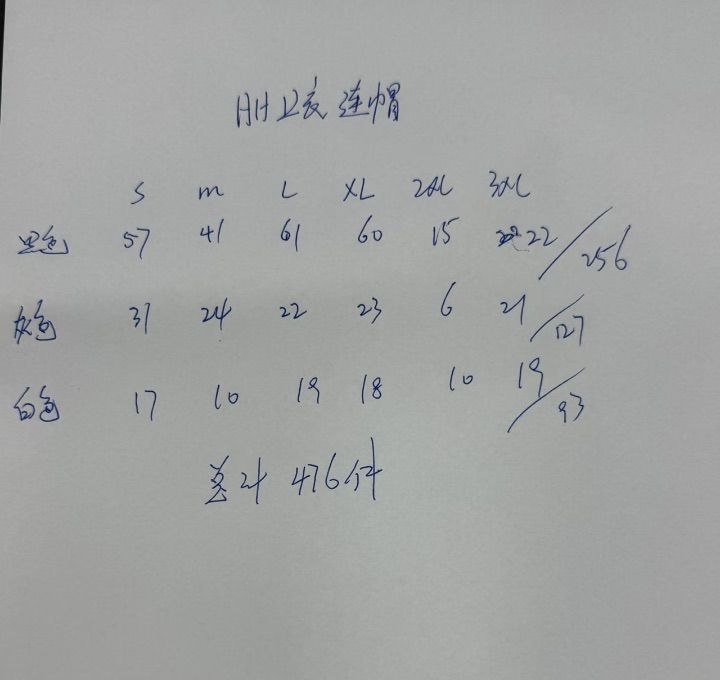 AH卫衣连帽
S m L XL 2XL 3XL
黑色 57 41 61 60 15 22/256
灰色 31 24 22 23 6 21/127
白色 17 10 19 18 10 19/93
总计 476件